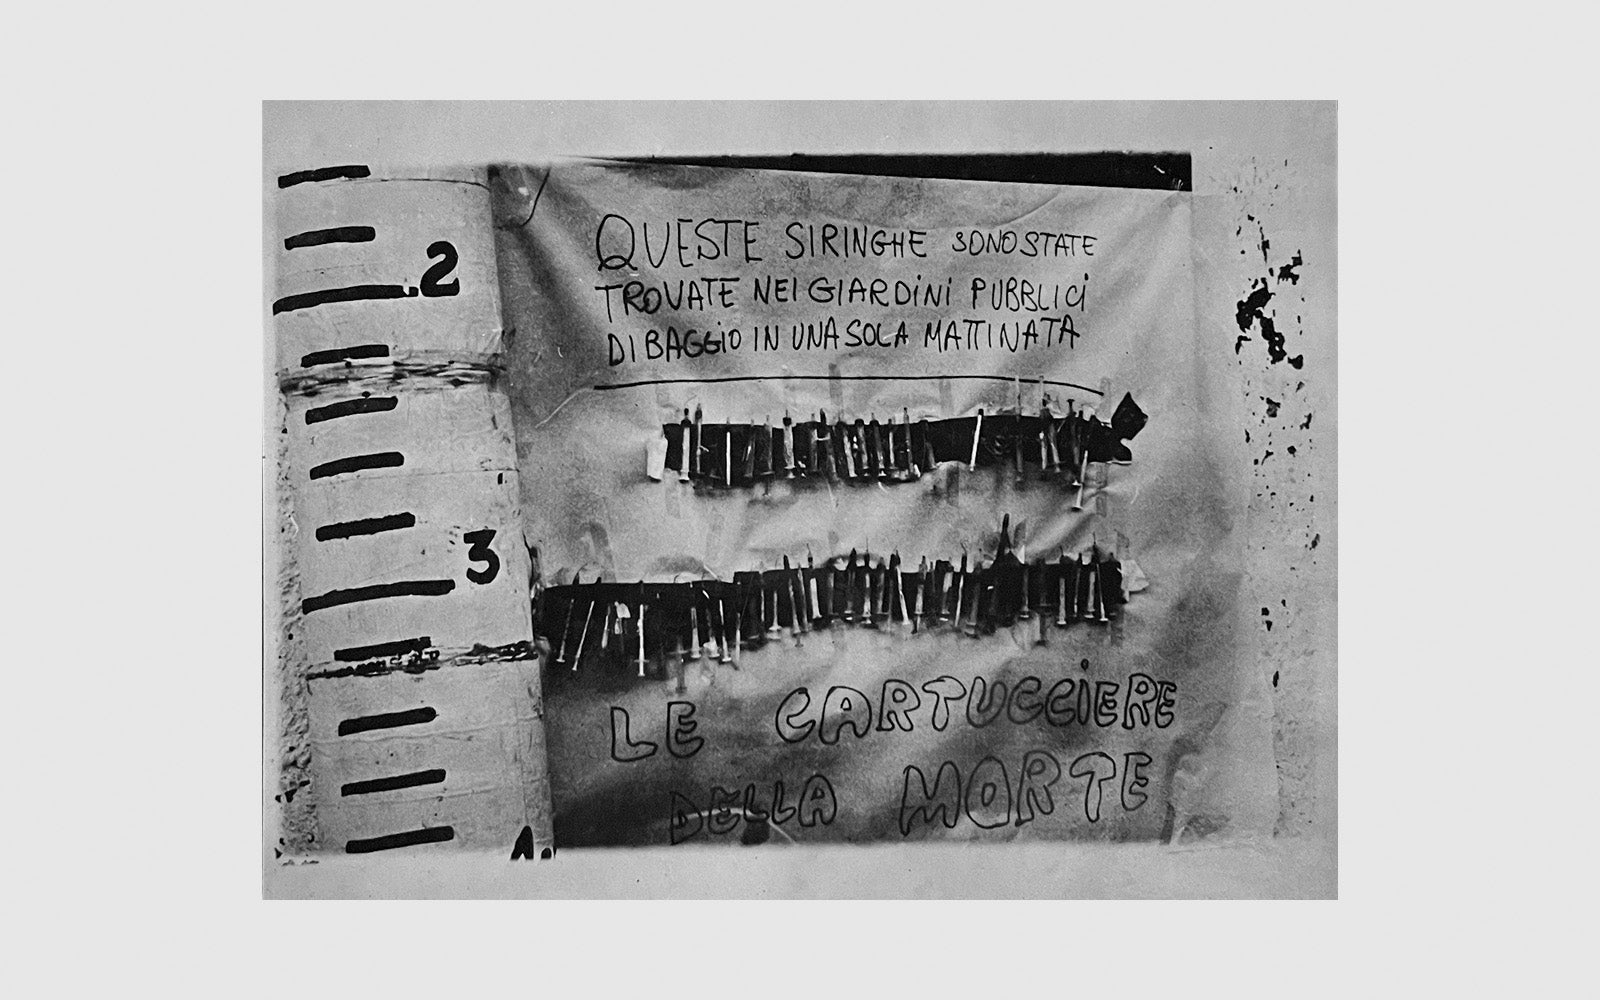 2
3
QUESTE SIRINGHE SONO STATE
TROVATE NEI GIARDINI PUBBLICI
DI BAGGIO IN UNA SOLA MATTINATA
LE CARTUCCIERE
DELLA MORTE